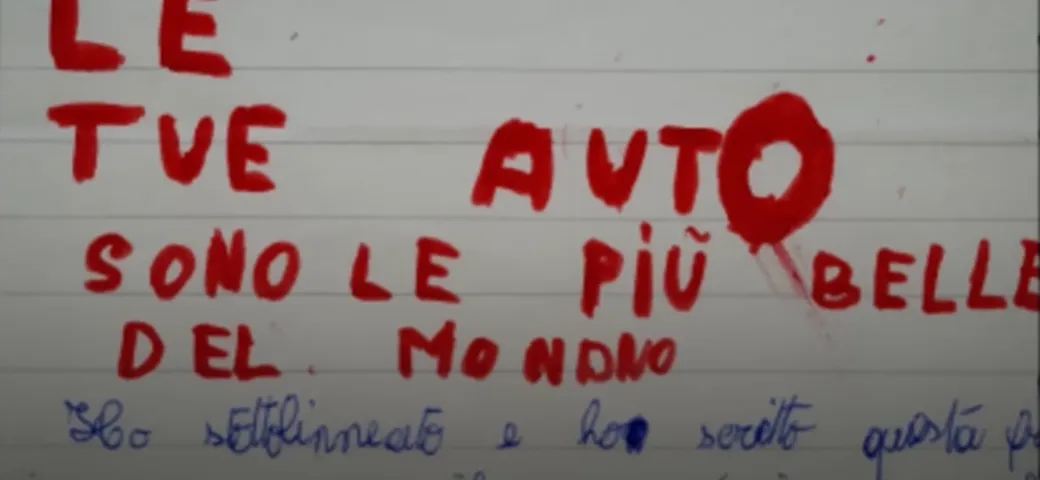 LE
TUE AUTO
SONO LE PIÙ BELLE
DEL. MONDNO
Ho sottolinneato e ho scritto questa